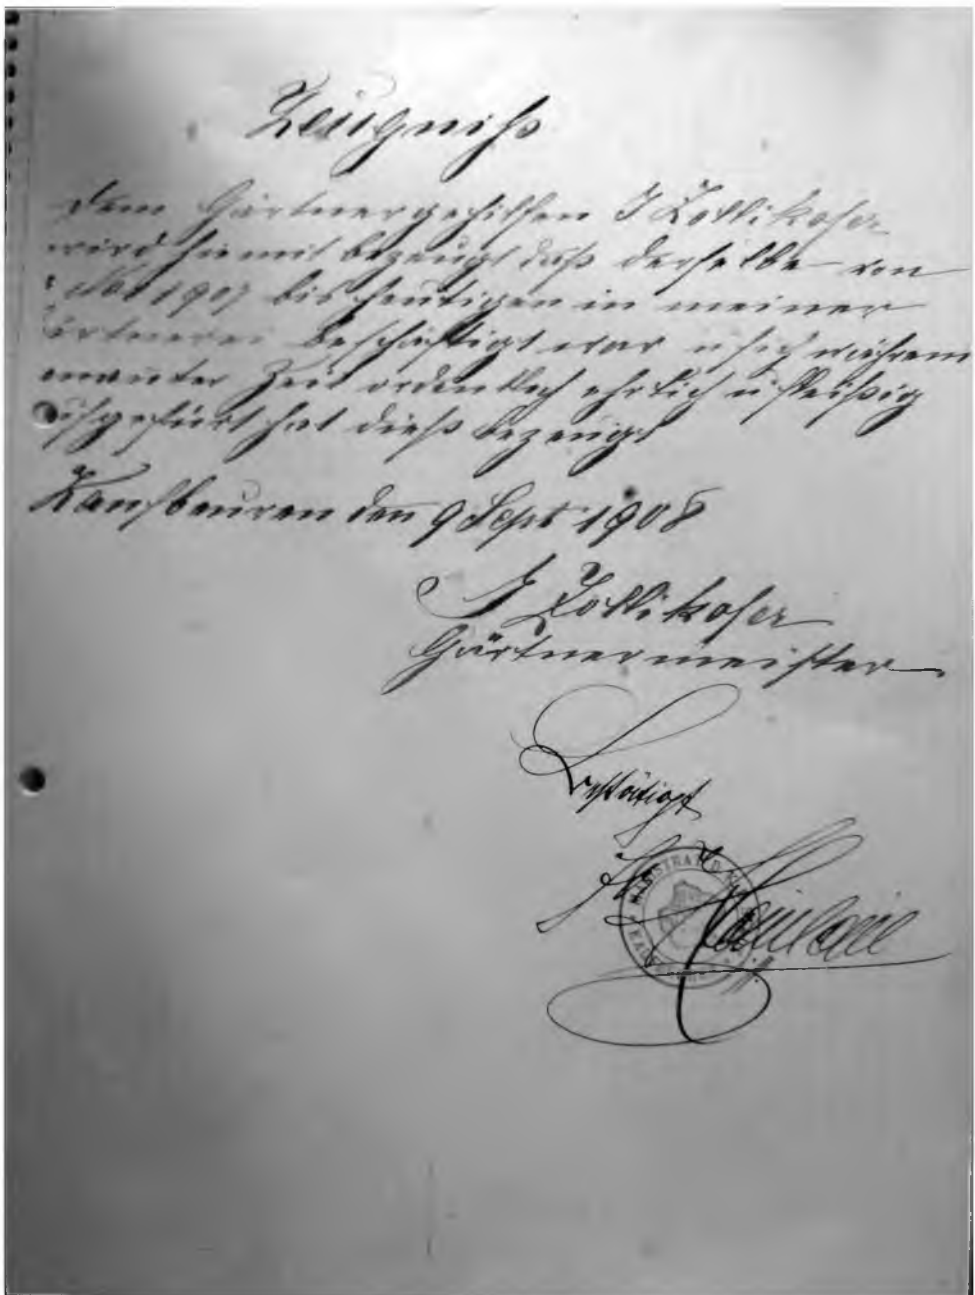 Zeugniß
Dem Gärtnergehilfen J Zollikofer
wird hiemit bezeugt daß derselbe von
1907 bis heutigen in meiner
ärtnerei beschäftigt war u sich währen
Zeit ordentlich ehrlich u fleißig
ufgeführt hat dieß bezeugt
Kaufbeuren den 9 Sept 1908
J Zollikofer
Gärtnermeister
Bestätigt
MAGISTRAT D.